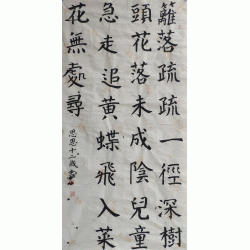 籬落疏疏一徑深樹
頭花落未成陰兒童
急走追黃蝶飛入菜
花無處尋
思思十二歲書